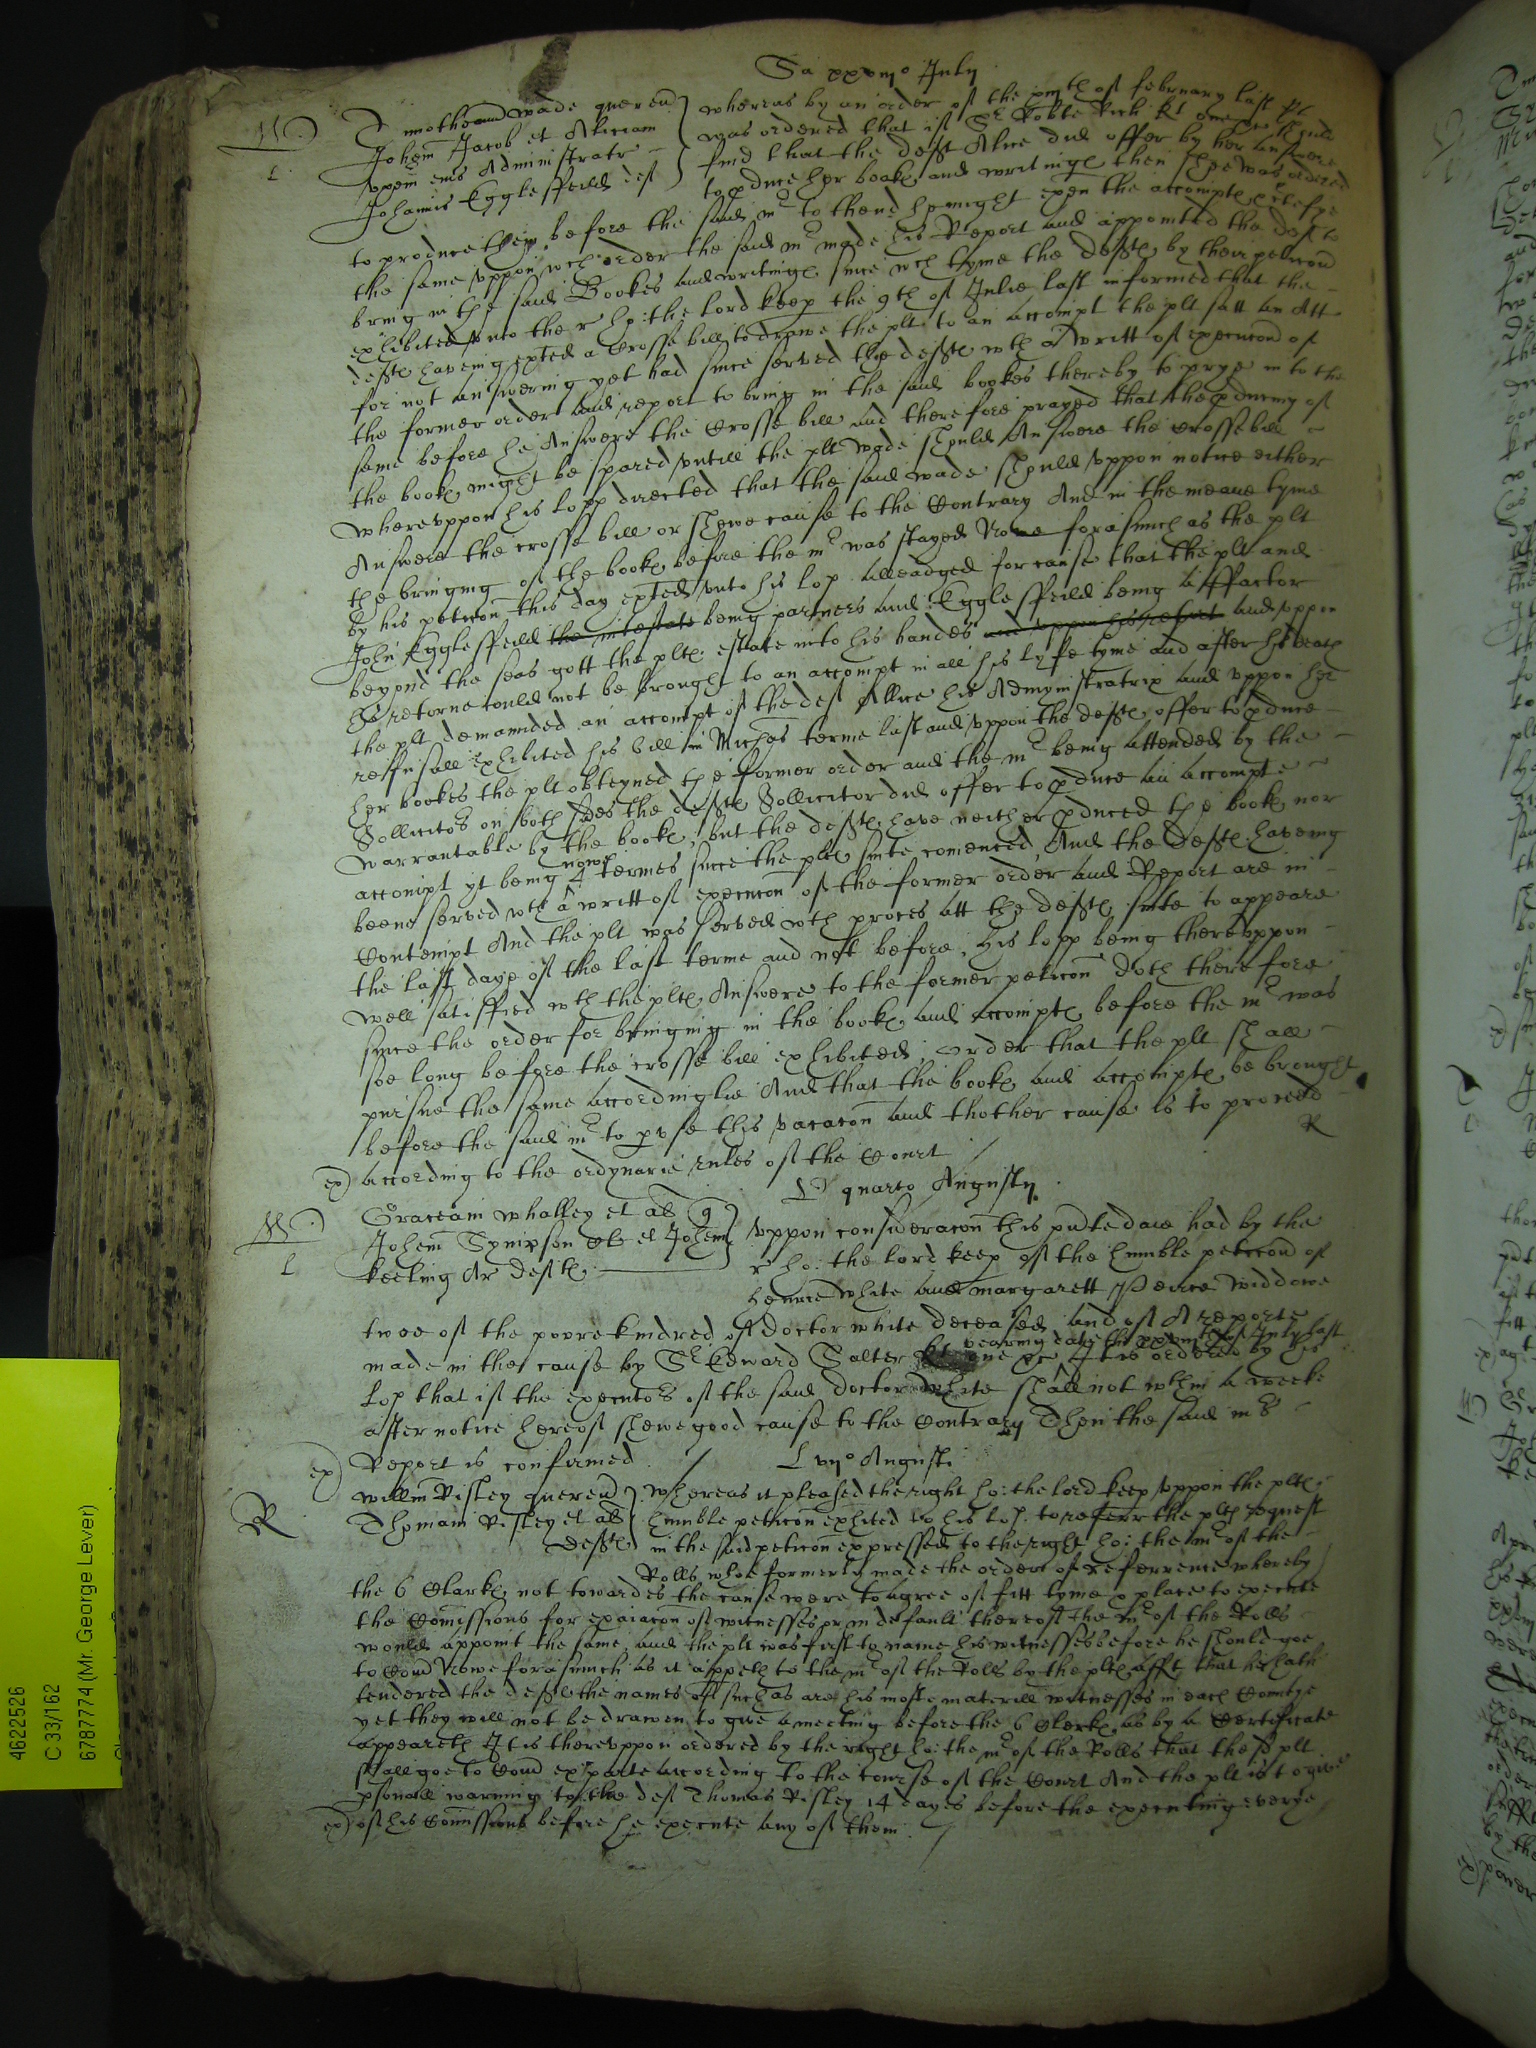 Sa xxviijo Julij
Timotheum Wade querend
Johem Jacob et Aliciam
vxem eius Administratr
Johannis Egglesffeild def
whereas by an order of the xiijth of february last yt
was ordered that if Sr Robte Rich kt one &c should
find that the deft Alice did offer by her answere
to pduce her books and writings then shee was ordered
to produce them before the said mr to thend he might expn the accompts & certefye
the same vppon wch order the said mr made his Report and appointed the deft to
bring in the said Bookes and writings since wch tyme the defts by their peticon
exhibited vnto the r ho: the lord keep the 9th of Julie last informed that the
defts haveing exted a Crosse bill to drawe the plt to an accompt the plt satt an Att
for not answering yet had since served the defts wth a writt of execucon of
the former order and report to bring in the said bookes thereby to prye in to the
same before he Answere the Crosse bill and therefore prayed that the pduceing of
the books might be spared vntill the plt Wade should Answere the crosse bill
Wherevppon his lopp directed that the said Wade should vppon notice either
Answere the crosse bill or shewe cause to the Contrary And in the meane tyme
the bringing of the books before the mr was stayed Nowe forasmuch as the plt
by his peticon this day exted vnto his lop alleadged for cause that the plt and
John Egglesffeild the intestate being partners and Egglesffeild being a ffactor
beyond the seas gott the plts estate into his handes and vppon his retorne and vppon
his retorne could not be brought to an accompt in all his lyfe tyme and after his death
the plt demaunded an accompt of the deft Allice his Admynistratrix and vppon her
reffusall exhibited his bill in Michas terme last and vppon the defts offer to pduce
her bookes the plt obteyned the former order and the mr being attended by the
Sollicitors on both sides the defts Sollicitor did offer to pduce an accompte
warrantable by the books, but the defts have neither pduced the books nor
accompt yt being nowe 4 termes since the plts suite comenced, And the defts haveing
beene served wth a writt of execucon of the former order and Report are in
Contempt And the plt was served wth proces att the defts suite to appeare
the last daye of the last terme and not before, his lopp being therevppon
well satisffied wth the plts Answere to the former peticon doth therefore
since the order for bringing in the books and accompts before the mr was
soe long before the crosse bill exhibited, order that the plt shall
pursue the same accordinglie And that the books and accompts be brought
before the said mr to pvse this vacacon and thother cause is to proceed
according to the ordynarie rules of the Court
R
ex)
L quarto Augusti
Graceam Whalley et al q
Johem Sympson &c et Johem
Keeling Ar defts
vppon consideracon this pnte daie had by the
r ho: the lord keep of the humble peticond of
henrie White and margarett Peirce widdowe
twoe of the poore kindred of doctor white deceased and of A reporte
made in the cause by Sr Edward Salter kt one &c bearing date the of July last It is ordered by his
lop that if the executors of the said doctor White shall not wthin a weeke
after notice hereof shewe good cause to the Contrary Then the said mrs
Report is confirmed
ex)
L vijo Augusti
R
Willm Risley querend
Thomam Risley et al
defts
whereas it pleased the right ho: the lord keep vppon the plts
humble peticon exhited to his lop. to referr the plts request
in the said peticon expressed to the right ho: the mr of the
Rolls whoe formerly made the order of refference whereby
the 6 Clarks not towardes the cause were to agree of fitt tyme & place to execute
the Comissions for exaiacon of witnesses or in default thereof the mr of the Rolls
would appoint the same, and the plt was first to name his witnesses before he should goe
to Comd Nowe forasmuch as it appeth to the mr of the Rolls by the plts afft that he hath
tendered the defts the names of such as are his moste materiall witnesses in each Countye
yet they will not be drawen to give a meeting before the 6 Clerks, as by a Certificate
appeareth It is therevppon ordered by the right ho: the mr of the Rolls that the sd plt
shall goe to Comd ex parte according to the course of the Court And the plt is to give
psonall warning to the deft Thomas Risley 14 dayes before the executing everye
ex) of his Comissions before he execute any of them
4622526
C 33/162
6787774 (Mr. George Lever)